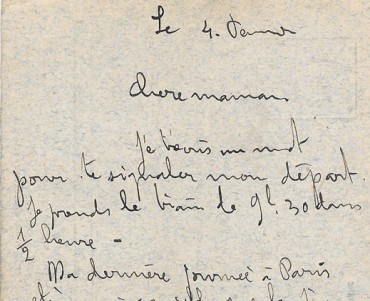 Le 4.
Chere maman.
Je t'écris un mot
pour te signaler mon départ.
Je prends le train de 9h.30 dans
1/2 heure -
Ma dernière journée à Paris